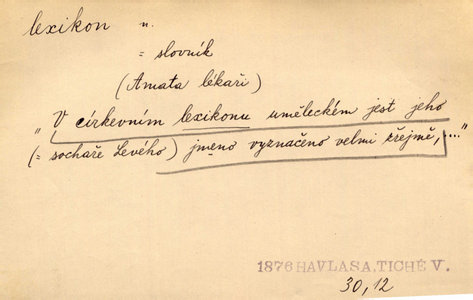 lexikon n.
= slovník
(Amata lékaři)
„V církevním lexikonu uměleckém jest jeho
(= sochaře Levého) jmeno vyznačeno velmi zřejmě,...“
1876 HAVLASA, TICHÉ V.
30, 12